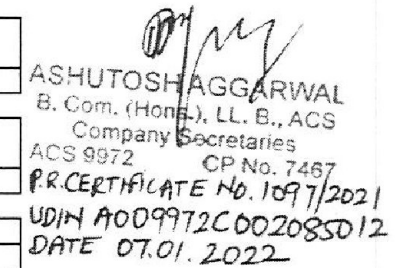 ASHUTOSH AGGARWAL
B. Com. (Hons.), LL. B., ACS
Company Secretaries
ACS 9972 CP No. 7467
P.R.CERTIFICATE NO. 1097/2021
UDIN A009972C002085012
DATE 07.01.2022